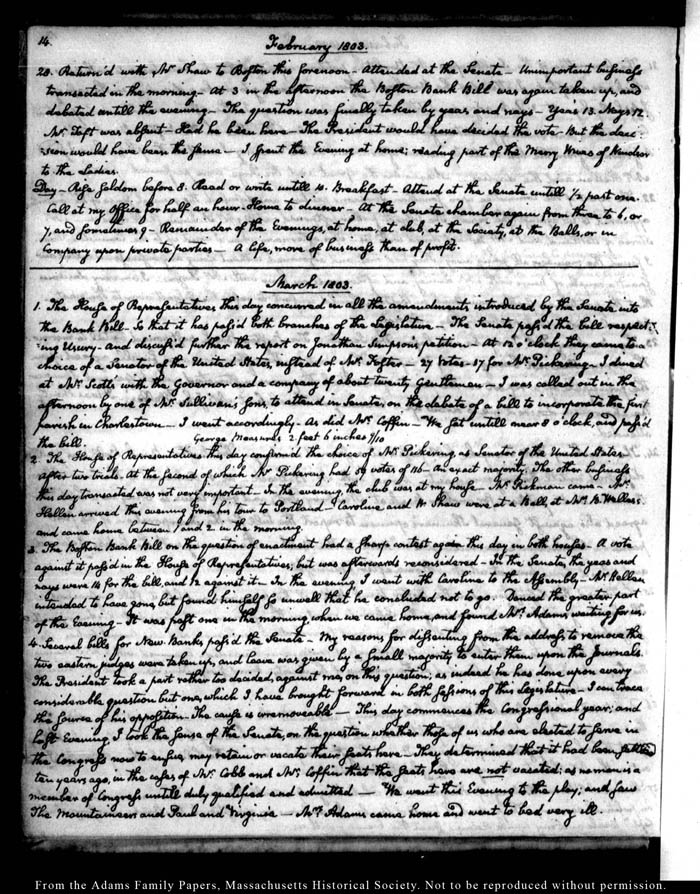 14.
February 1803.
28. Return'd with Mr. Shaw to Boston this forenoon – Attended at the Senate – Unimportant business
transacted in the morning – At 3 in the afternoon the Boston Bank Bill was again taken up, and
debated untill the evening – The question was finally taken by yeas and nays – Yeas 13. Nays 12.
Mr. Tuft was absent – Had he been here – The President would have decided the vote – But the deci-
:sion would have been the same – I spent the Evening at home; reading part of the Merry Wives of Windsor
to the Ladies.
Day – Rise seldom before 8. Read or write untill 10. Breakfast – Attend at the Senate untill ½ past one.
Call at my Office for half an hour – Home to dinner – At the Senate chamber again from three to 6, or
7, and sometimes 9 – Remainder of the Evenings, at home, at club, at the Society, at the Balls, or in
Company upon private parties – A life, more of business than of profit.
March 1803.
1. The House of Representatives this day concurred in all the amendments introduced by the Senate into
the Bank Bill – So that it has pass'd both branches of the Legislature – The Senate pass'd the bill respect-
:ing Usury – and discuss'd further the report on Jonathan Simpson's petition – At 12 o'clock they came to a
choice of a Senator of the United States, instead of Mr. Foster – 27 Votes – 17 for Mr. Pickering – I dined
at Mr. Scott's with the Governor and a company of about twenty Gentlemen – I was called out in the
afternoon by one of Mr. Sullivan's sons, to attend in Senate, on the debate of a bill to incorporate the first
parish in Charlestown – I went accordingly – As did Mr. Coffin – We sat untill near 8 o'clock, and pass'd
the bill. George Measures 2 feet 6 inches 9/10
2. The House of Representatives this day confirm'd the choice of Mr. Pickering, as Senator of the United States
After two trials – At the second of which Mr. Pickering had 59 votes of 116 – an exact majority. The other business
this day transacted was not very important – In the evening, the club was at my house – Mr. Rickman came – Mr.
Hellen arrived this evening from his tour to Portland – Caroline and W. Shaw were at a Ball, at Mr. B. Wells's
and came home between 1 and 2. in the morning.
3. The Boston Bank Bill on the question of enactment had a sharp contest again this day in both houses – A vote
against it pass'd in the House of Representatives; but was afterwards reconsidered – In the Senate, the yeas and
nays were 14 for the bill, and 12 against it – In the evening I went with Caroline to the Assembly – Mr. Hellen
intended to have gone, but found himself so unwell that he concluded not to go. Danced the greater part
of the Evening – It was past one in the morning, when we came home, and found Mrs. Adams, waiting for us.
4. Several bills for New Banks pass'd the Senate – My reasons for dissenting from the address to remove the
two eastern judges were taken up, and leave was given by a small majority to enter them upon the Journals.
The President took a part rather too decided, against me, on this question; as indeed he has done upon every
considerable question but one, which I have brought forward in both sessions of this Legislature – I can trace
the source of his opposition – The cause is irremoveable – This day commences the Congressional year; and
last Evening I took the sense of the Senate, on the question whether those of us who are elected to serve in
the Congress now to ensue, may retain or vacate their seats here – They determined that it had been settled
ten years ago, in the cases of Mr. Cobb and Mr. Coffin that the seats here are not vacated; as no man is a
member of Congress untill duly qualified and admitted – We went this Evening to the play; and saw
The Mountaineers and Paul and Virginia – Mrs. Adams came home and went to bed very ill.
From the Adams Family Papers, Massachusetts Historical Society. Not to be reproduced without permission.